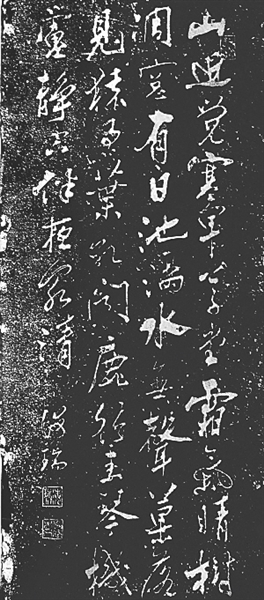 山近覺寒早草堂霜氣晴樹
凋窗有日池滿水無聲菓落
見猿過葉乾聞鹿行素琴機
慮靜空伴夜泉清